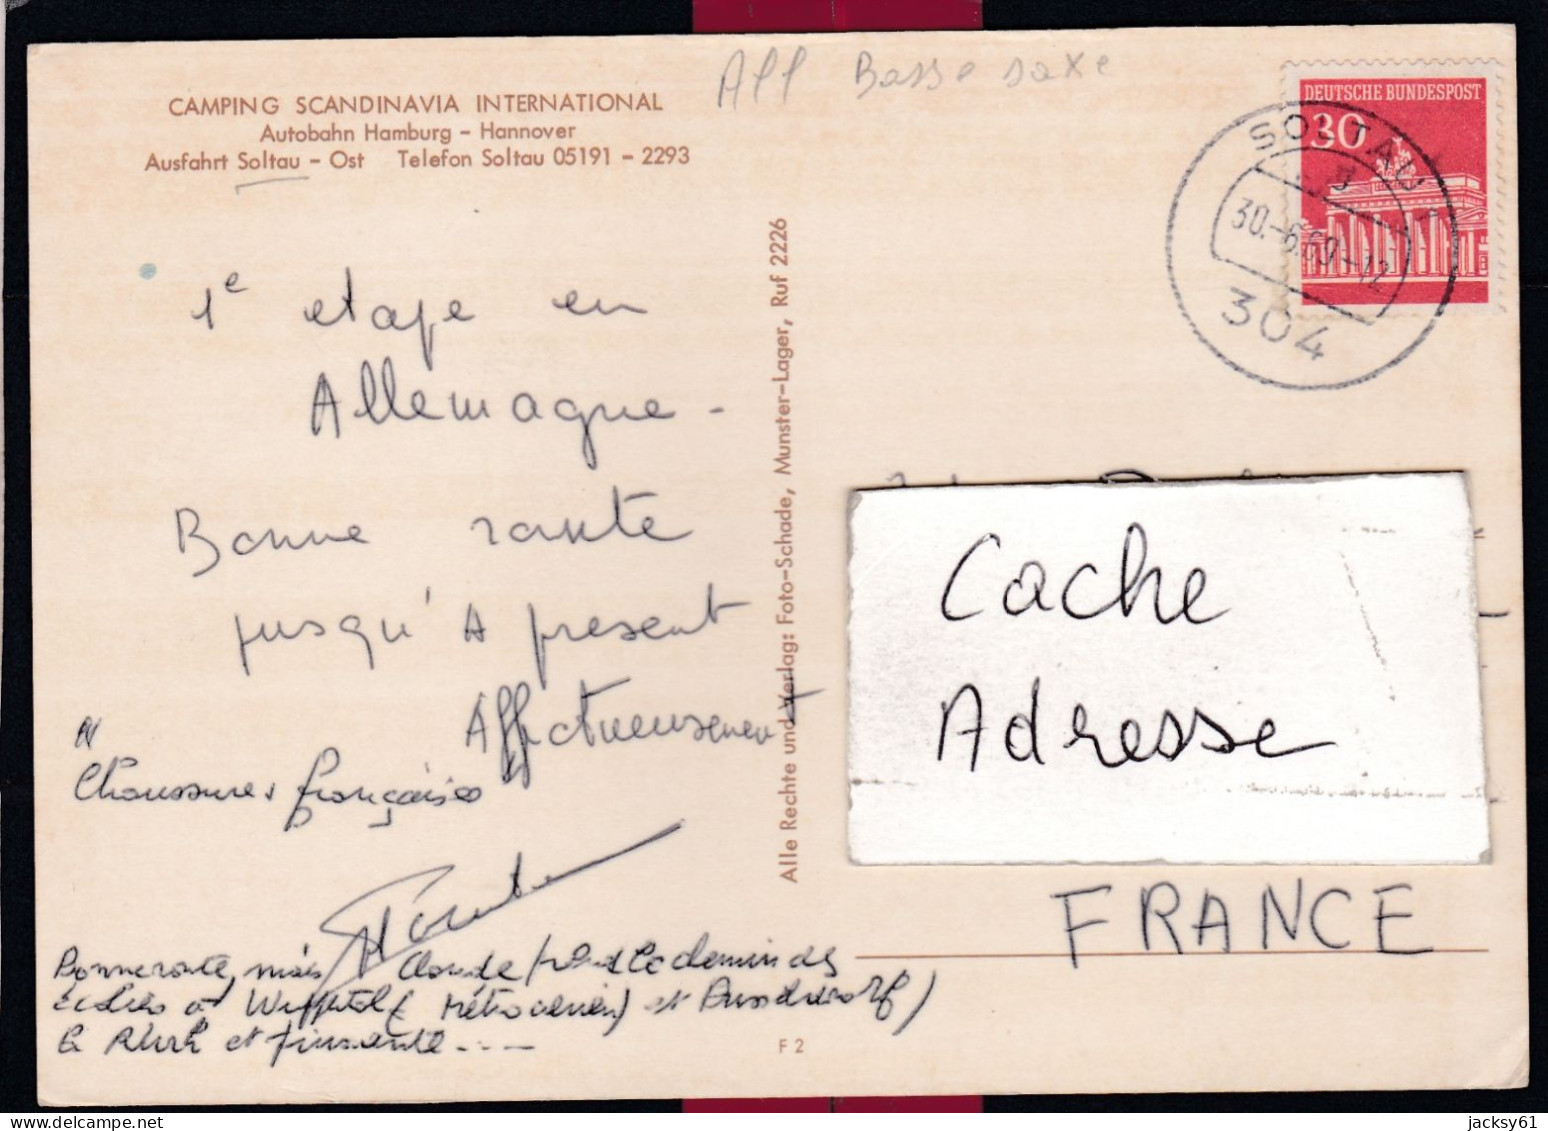 All Basse saxe
CAMPING SCANDINAVIA INTERNATIONAL
Autobahn Hamburg - Hannover
Ausfahrt Soltau - Ost Telefon Soltau 05191 - 2293
DEUTSCHE BUNDESPOST
30
SOLTAU 1
30.-6.69-12
304
1e etape en
Allemagne -
Bonne route
jusqu'à present
Affectueusement
Chaussures françaises
Bonne route, mais Claude prend le chemin des
à (Métro aérien) et
la Ruhr et fumante ----
Alle Rechte und Verlag: Foto-Schade, Munster-Lager, Ruf 2226
F 2
Cache
Adresse
FRANCE
jacksy61